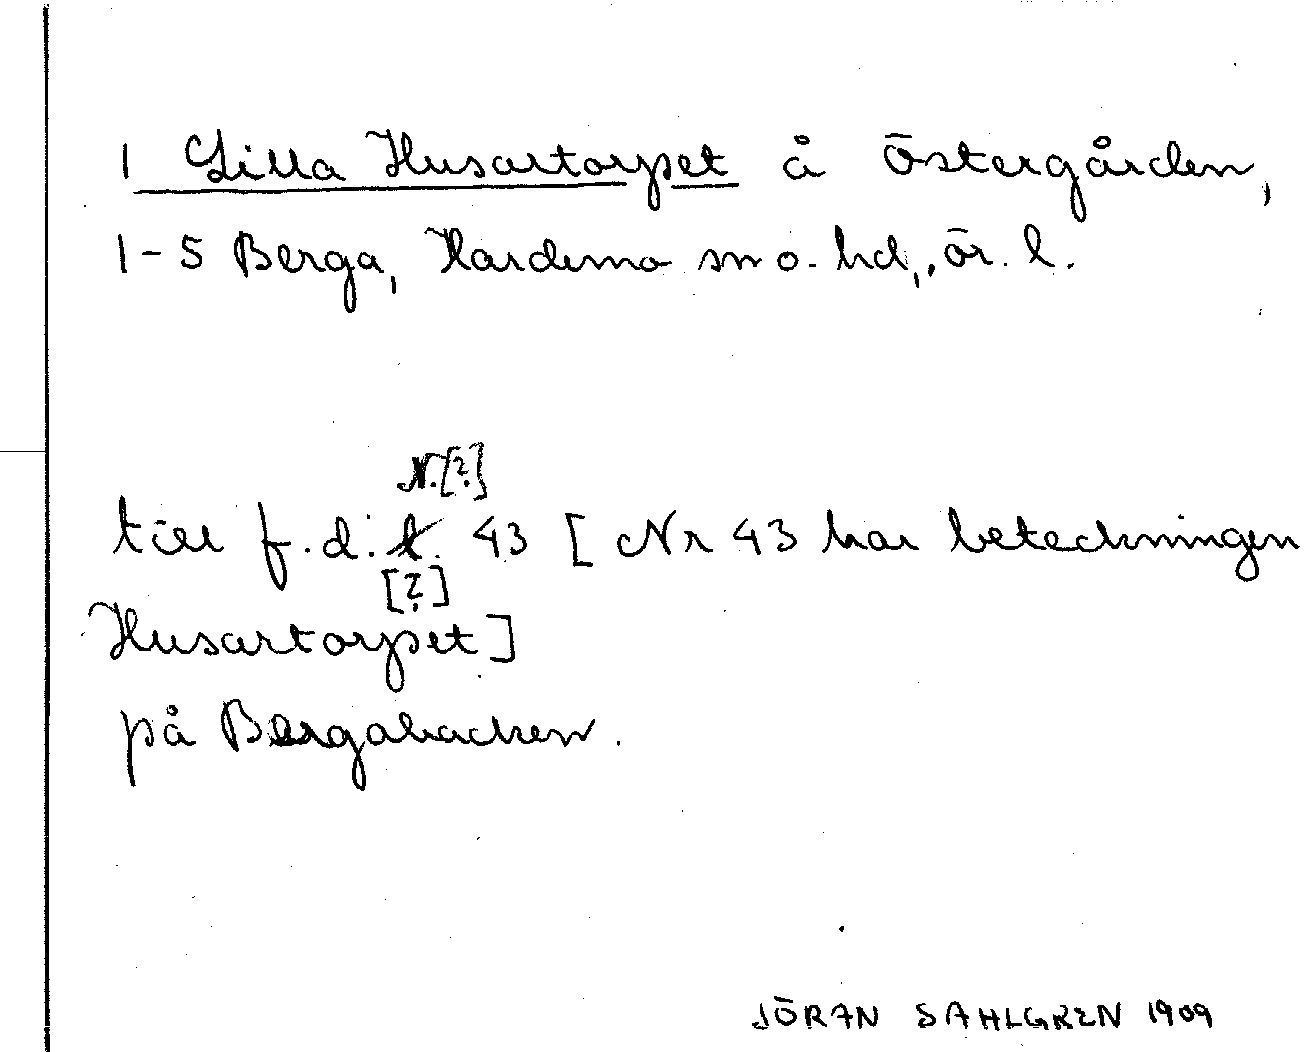 1 Lilla Husartorpet å Östergården,
1-5 Berga, Hardemo sn o. hd, ör. l.
N.[?]
till f.d. t. 43 [Nr 43 har beteckningen
[?]
Husartorpet]
på Bergabacken.
JÖRAN SAHLGREN 1909